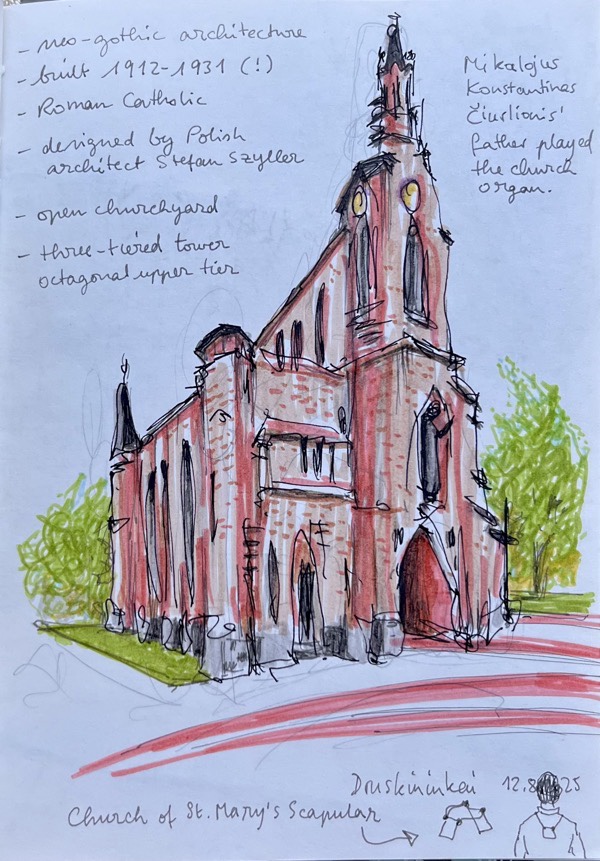 - neo-gothic architecture
- built 1912-1931 (!)
- Roman Catholic
- designed by Polish
architect Stefan Szyller
- open churchyard
- three-tiered tower
octagonal upper tier
Mikalojus
Konstantinas
Čiurlionis'
father played
the church
organ.
Druskininkai 12.8 25
Church of St. Mary's Scapular